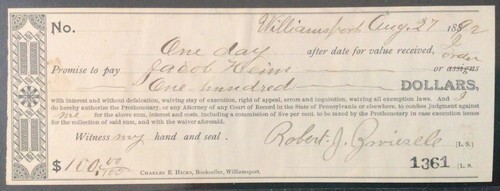 No. Williamsport Aug. 27 1892
One day after date for value received, I
Promise to pay Jacob Heim or assigns order
One hundred DOLLARS,
with interest and without defalcation, waiving stay of execution, right of appeal, errors and inquisition, waiving all exemption laws. And I
do hereby authorize the Prothonotary, or any Attorney of any Court of Record in the State of Pennsylvania or elsewhere, to confess judgment against
me for the above sum, interest and costs, including a commission of five per cent. to be taxed by the Prothonotary in case execution issues
for the collection of said sum, and with the waiver aforesaid.
Witness my hand and seal. Robert. J. (L. S.)
$100.00/100 1361 (L. S.
CHARLES E. HICKS, Bookseller, Williamsport.